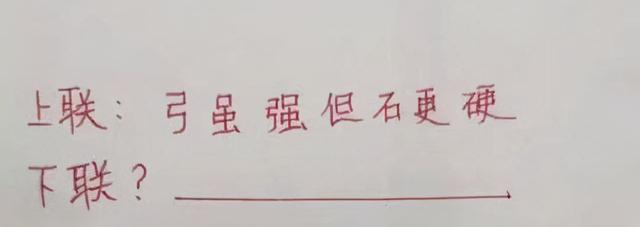 上联：弓虽强但石更硬
下联？